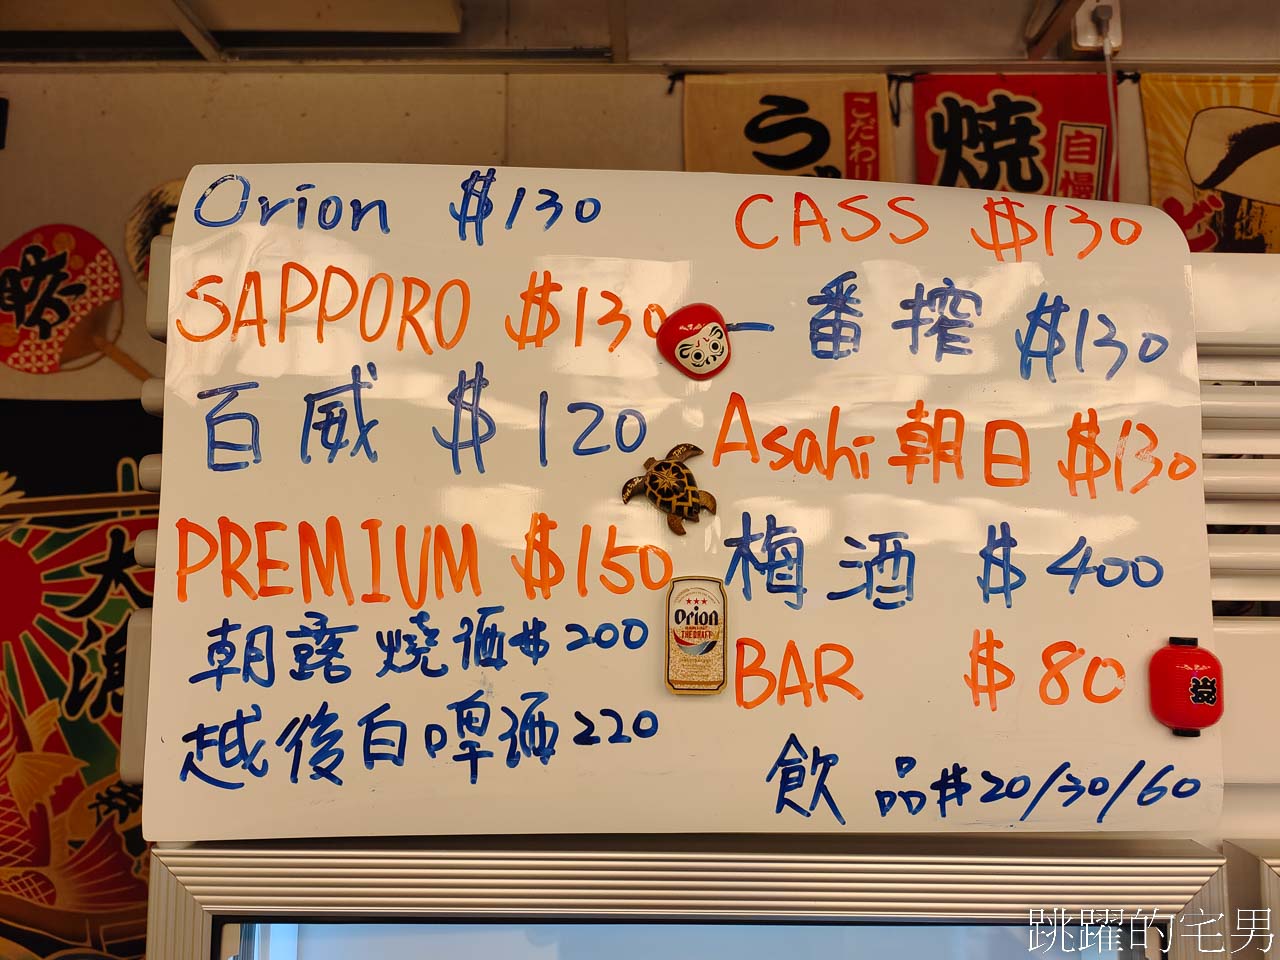 Orion $130
SAPPORO $130
百威 $120
PREMIUM $150
朝露燒酒$200
越後白啤酒220
CASS $130
一番搾 $130
Asahi 朝日 $130
梅酒 $400
BAR $80
飲品$20/30/60
Orion
THE DRAFT
う
こだわり
焼
自慢
ど
大漁
跳躍的宅男